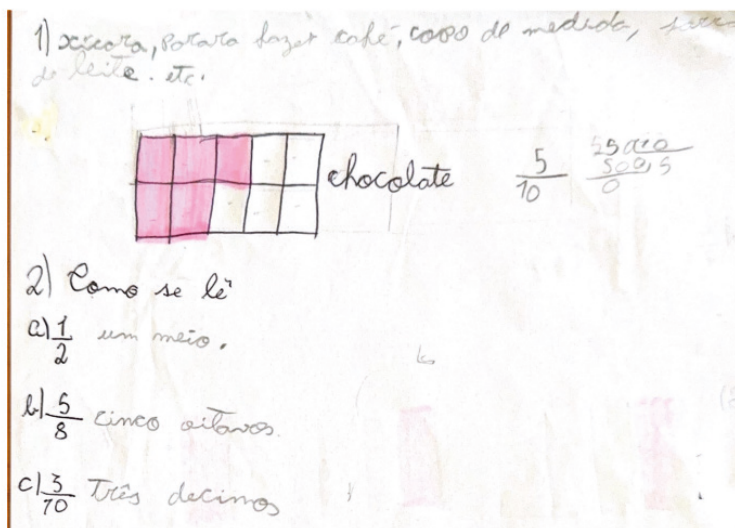 1) xicara, para fazer café, copo de medida,
de leite. etc.
chocolate
5/10
2) Como se lê
a) 1/2 um meio.
b) 5/8 cinco oitavos
c) 3/10 três decimos